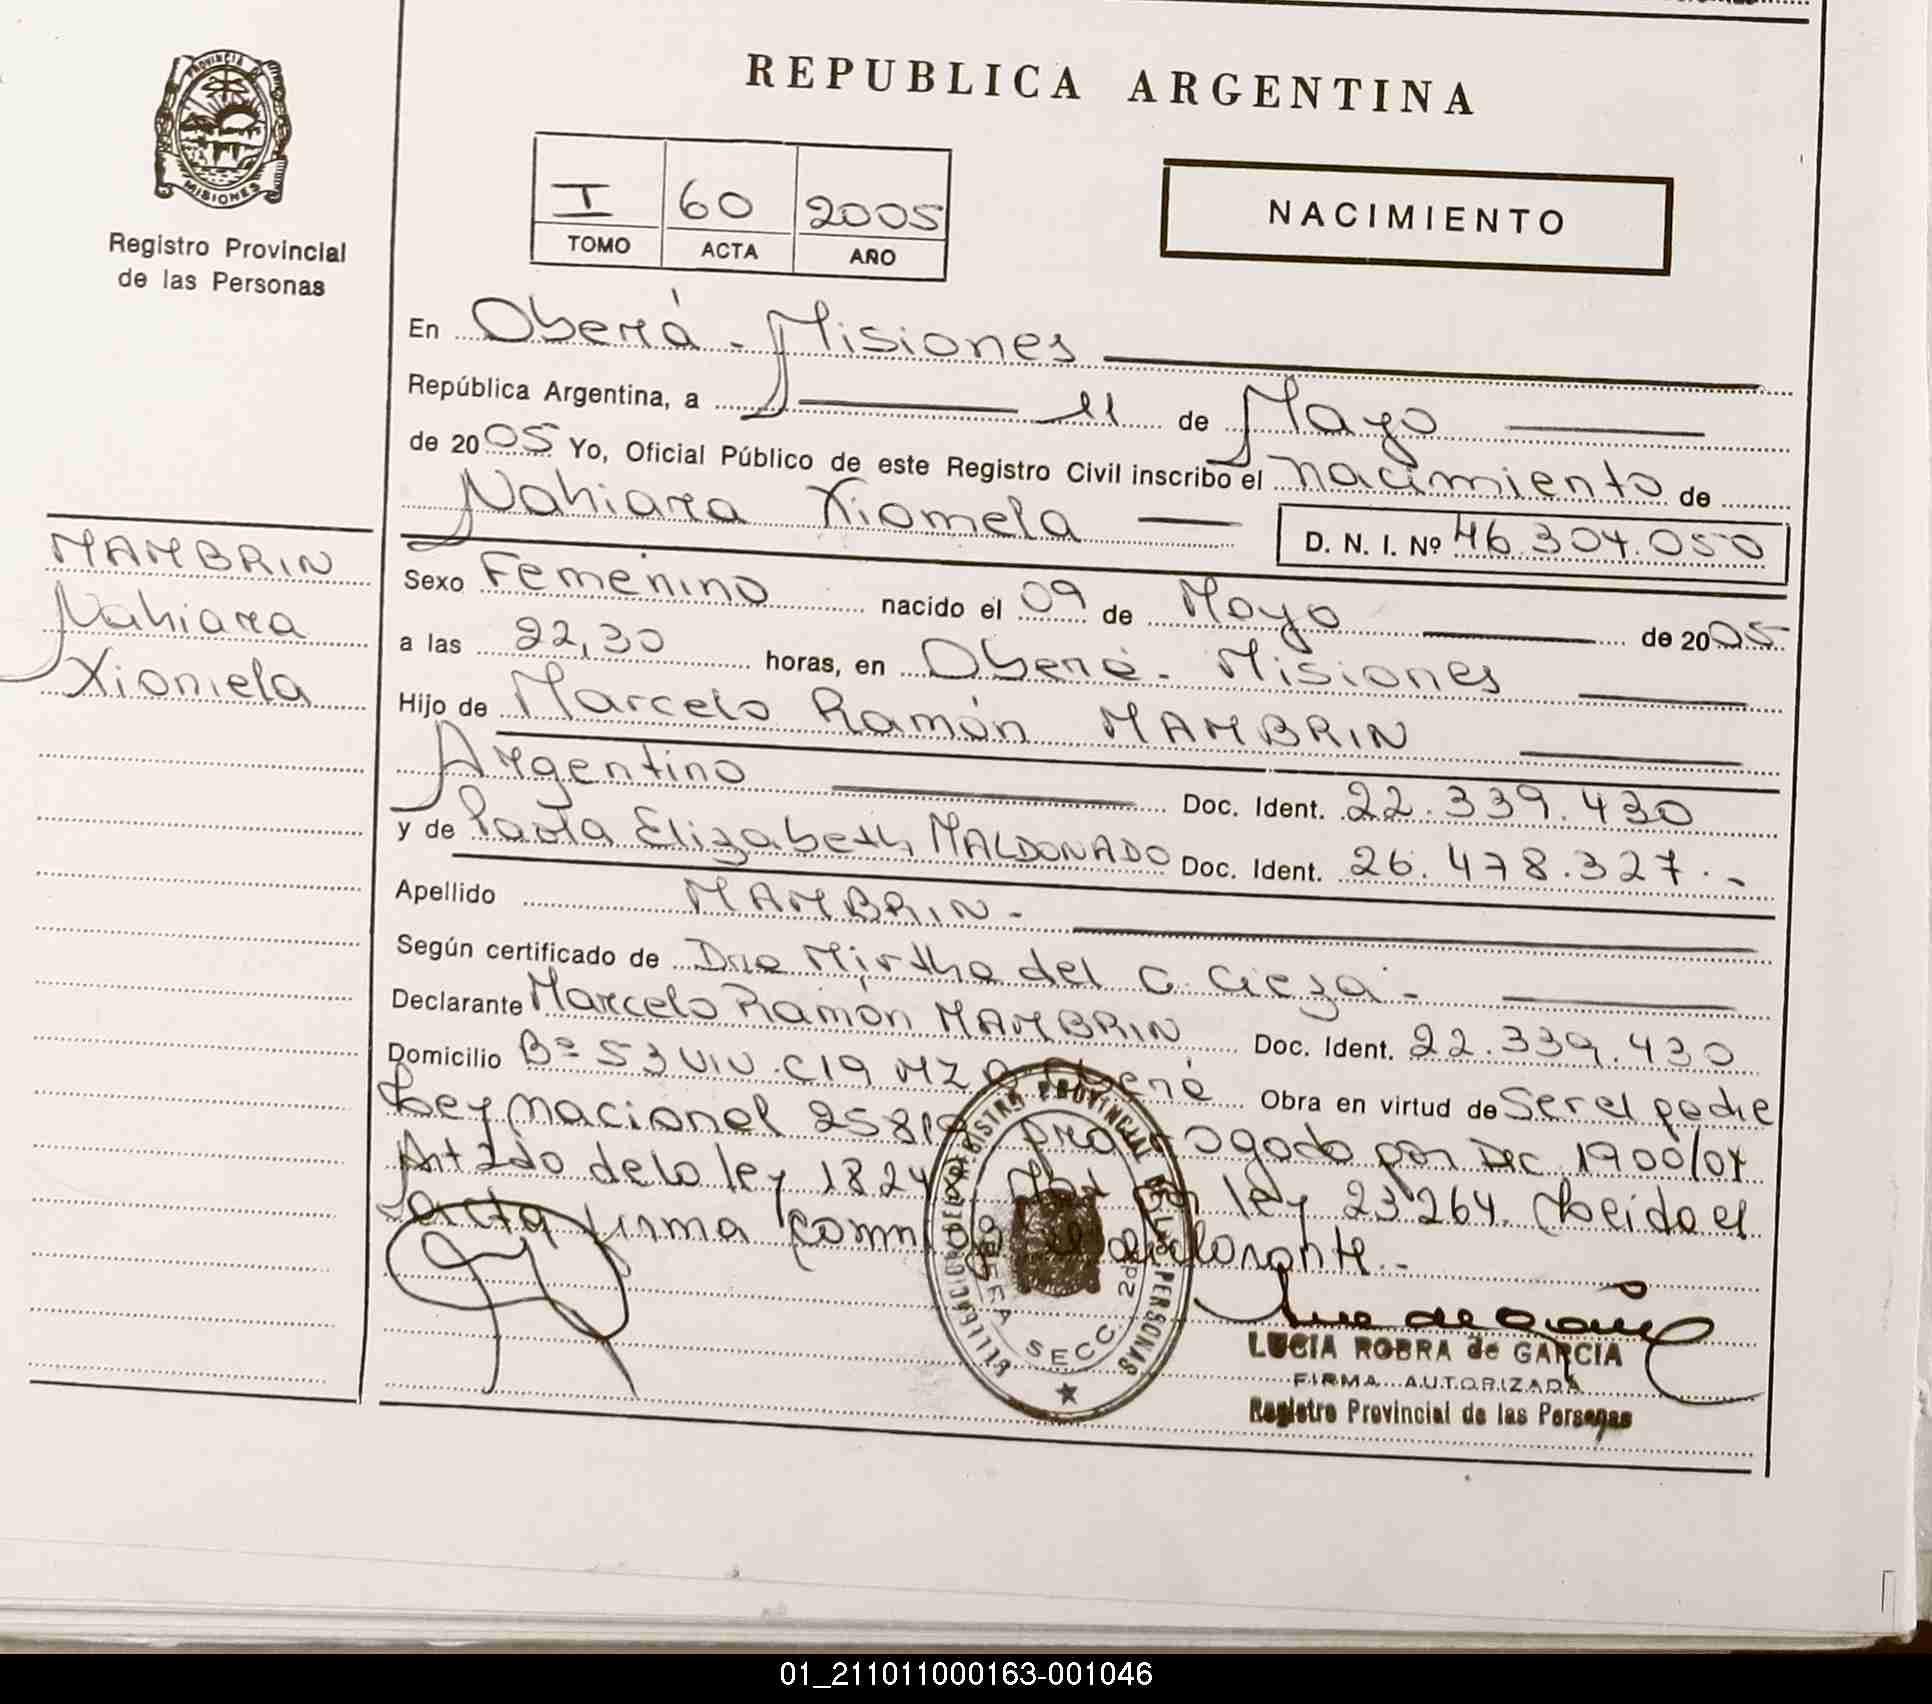 REPUBLICA ARGENTINA
PROVINCIA
MISIONES
Registro Provincial
de las Personas
I 60 2005
TOMO ACTA AÑO
NACIMIENTO
En Oberá - Misiones
República Argentina, a 11 de Mayo
de 2005 Yo, Oficial Público de este Registro Civil inscribo el nacimiento de
Nahiara Xiomela D. N. I. Nº 46.304.050
MAMBRIN
Nahiara
Xiomela
Sexo Femenino nacido el 09 de Mayo de 2005
a las 22,30 horas, en Oberá - Misiones
Hijo de Marcelo Ramón MAMBRIN
Argentino Doc. Ident. 22.339.430
y de Paola Elizabeth MALDONADO Doc. Ident. 26.478.327.-
Apellido MAMBRIN -
Según certificado de Dra Mirtha del C. Cieza -
Declarante Marcelo Ramón MAMBRIN Doc. Ident. 22.339.430
Domicilio Bº 53 VIV. C19 MZ Oberá Obra en virtud de Ser el padre
Ley Nacional 25819 prorrogado por Dec. 1900/04
Art 2do de la ley 18248 por ley 23264. Leida el
acta firma conmigo el declarante.-
DELEGACION REGISTRO PROVINCIAL DE LAS PERSONAS
SECC. 2da
LUCIA ROBRA de GARCIA
FIRMA AUTORIZADA
Registro Provincial de las Personas
01_211011000163-001046